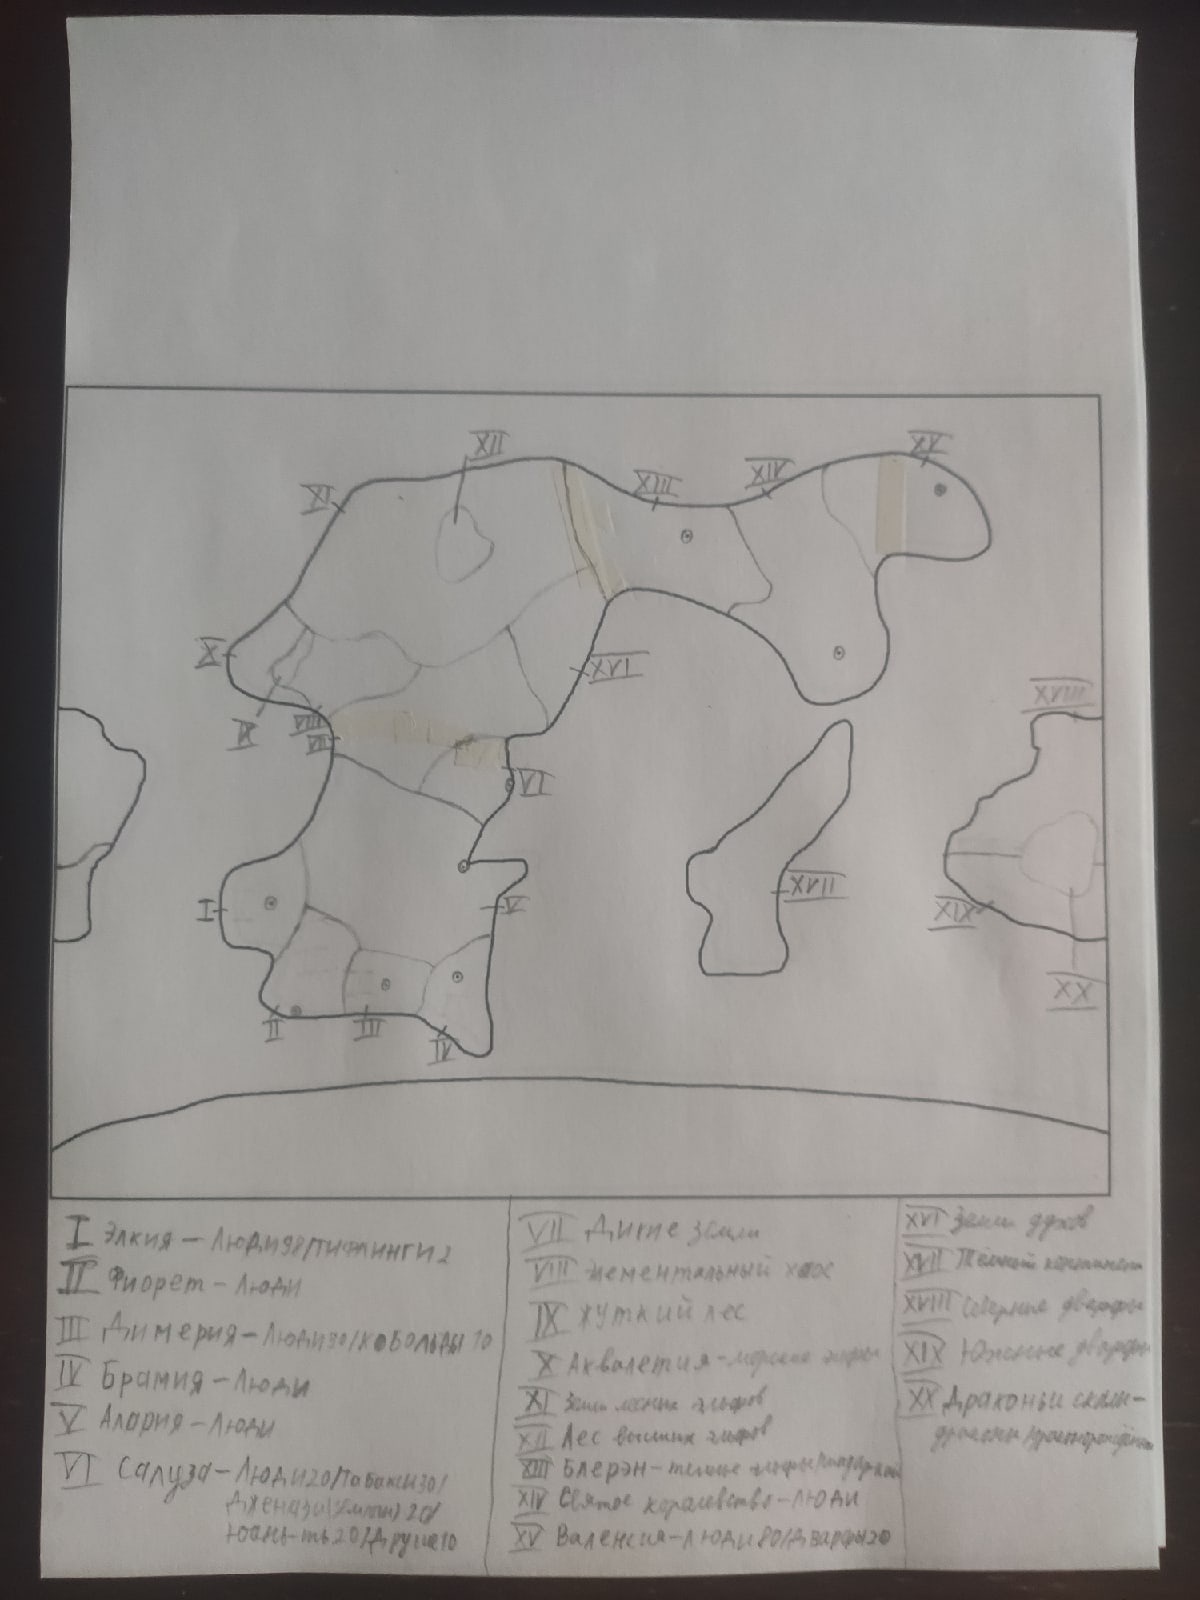 XII
XV
XI
XIII
XIV
X
XVI
XVIII
IX
VIII
VII
VI
XVII
I
V
XIX
XX
II
III
IV
I Элкия – Люди98/тифлинги2
II Фиорет – Люди
III Димерия – Люди30/Кобольды 70
IV Брамия – Люди
V Алария – Люди
VI Салуза – Люди20/Табакси30/
Дженази 20/
Юань-ти20/Другие10
VII Дикие земли
VIII Элементальный хаос
IX Жуткий лес
X Аквалетия – морские эльфы
XI Земли лесных эльфов
XII Лес высших эльфов
XIII Блерэн – темные эльфы/
XIV Святое королевство – люди
XV Валенсия – люди 80/дварфы20
XVI Земли духов
XVII Тёмный континент
XVIII Северные дварфы
XIX Южные дварфы
XX Драконьи скалы –
драконы/драконорождённые